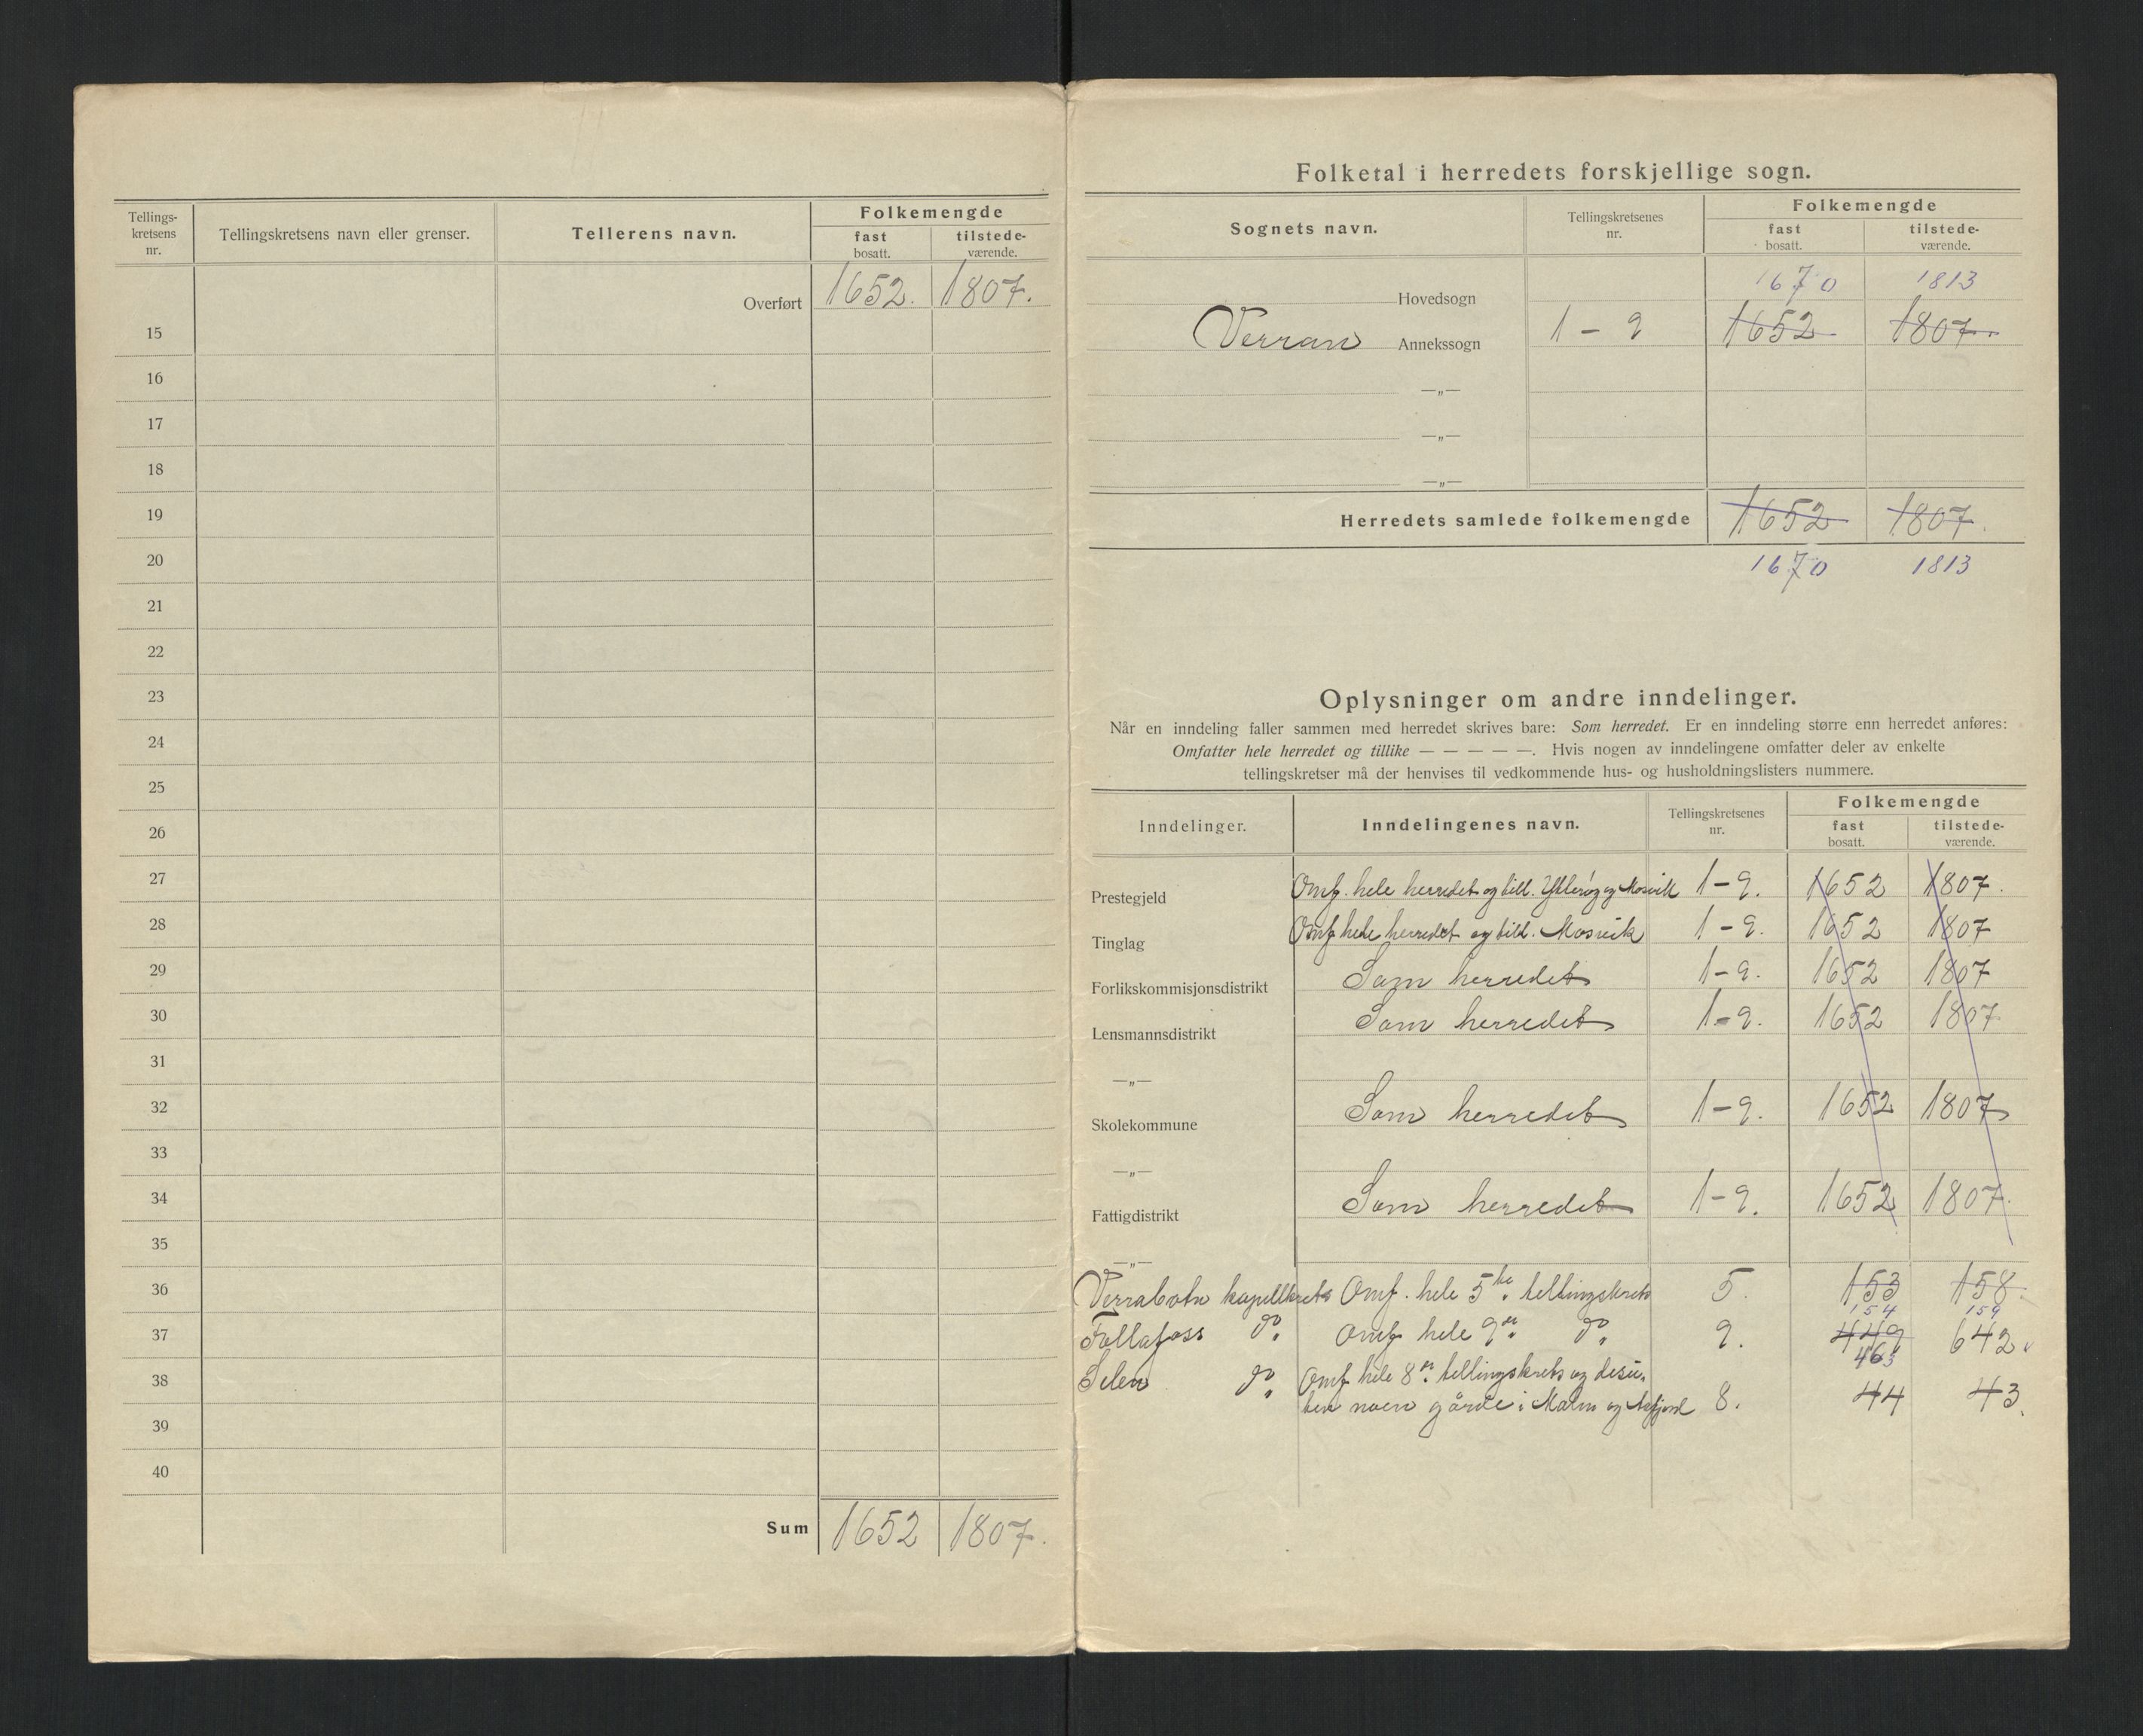 Tellings-
kretsens
nr.
Tellingskretsens navn eller grenser.
Tellerens navn.
Folkemengde
fast
bosatt.
tilstede-
værende.
Overført 1652. 1807.
15
16
17
18
19
20
21
22
23
24
25
26
27
28
29
30
31
32
33
34
35
36
37
38
39
40
Sum 1652 1807.
Folketal i herredets forskjellige sogn.
Sognets navn.
Tellingskretsenes
nr.
Folkemengde
fast
bosatt.
tilstede-
værende.
1670 1813
Hovedsogn
Verran Annekssogn 1 - 9 1652 1807.
—„—
—„—
—„—
Herredets samlede folkemengde 1652 1807.
1670 1813
Oplysninger om andre inndelinger.
Når en inndeling faller sammen med herredet skrives bare: Som herredet. Er en inndeling større enn herredet anføres:
Omfatter hele herredet og tillike — — — — —. Hvis nogen av inndelingene omfatter deler av enkelte
tellingskretser må der henvises til vedkommende hus- og husholdningslisters nummere.
Inndelinger.
Inndelingenes navn.
Tellingskretsenes
nr.
Folkemengde
fast
bosatt.
tilstede-
værende.
Prestegjeld Omf. hele herredet og till. Ytterøy og Mosvik 1-9. 1652 1807.
Tinglag Omf hele herredet og till. Mosvik 1-9. 1652 1807
Forlikskommisjonsdistrikt Som herredet 1-9. 1652 1807
Lensmannsdistrikt Som herredet 1-9. 1652 1807.
—„—
Skolekommune Som herredet 1-9. 1652 1807
—„—
Fattigdistrikt Som herredet 1-9. 1652 1807.
—„—
Verrabotn kapellkrets Omf. hele 5te tellingskrets 5. 153 158.
154 159
Follafoss do. Omf hele 9de do. 9. 449 642
463
Selen do. Omf hele 8de tellingskrets og desu-
ten noen gårde i Malm og 8. 44 43.